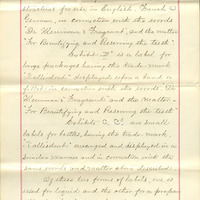 structions printed in English, French &
German, in connection with the words
"Dr. Merriman's Fragrant", and the matter
"For Beautifying and Preserving the Teeth".
Exhibit "B" is a label for
large packages having the trade mark
"Calliodont" displayed upon a band or
fillet in connection with the words "Dr.
Merriman's Fragrant" and the matter -
"For Beautifying and Preserving the teeth"
Exhibits C, D, are small
labels for bottles, having the trade-mark
"Calliodont" arranged and displayed in a
similar manner and in connection with the
same words and matter above described.
Of these two forms of labels, one is
used for liquid and the other for a prepara